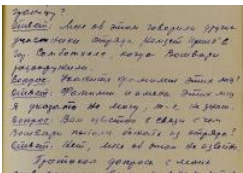 границу?
Ответ: Мне об этом говорили другие
участники отряда
гор. Сомботхей, когда Вошвари
разоружили.
Вопрос: Укажите фамилии этих лиц?
Ответ: Фамилии и имена этих лиц
я указать не могу, т.к. не знаю.
Вопрос: Вам известно в связи с чем
Вошвари бежать из отряда?
Ответ: Нет, мне об этом не известно.
Протокол допроса с моих